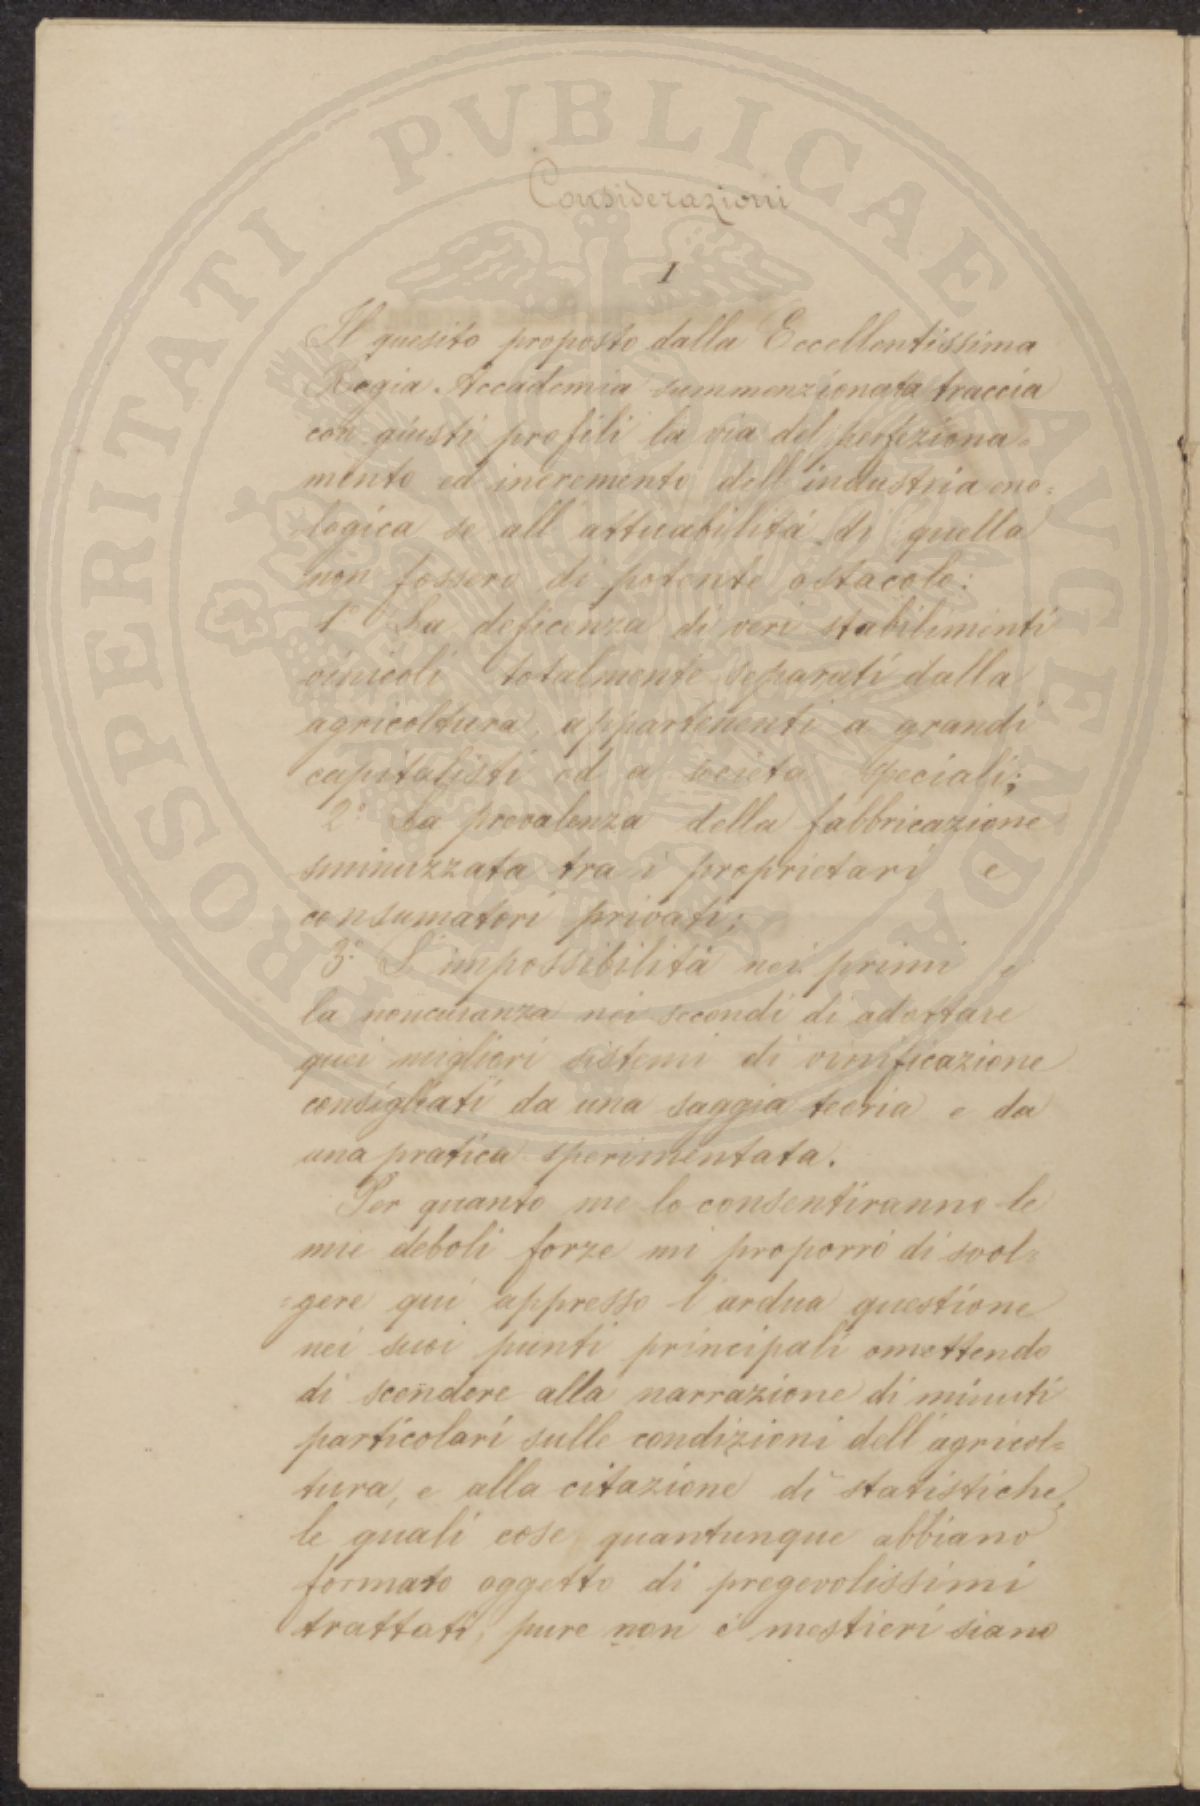 PROSPERITATI PVBLICAE AVGENDAE
Considerazioni
I
Il quesito proposto dalla Eccellentissima
Regia Accademia summenzionata traccia
con giusti profili la via del perfeziona=
mento ed incremento dell'industria eno=
logica se all'attuabilità di quello
non fossero di potente ostacolo:
1° La deficenza di veri stabilimenti
vinicoli totalmente separati dalla
agricoltura, appartenenti a grandi
capitalisti od a società speciali;
2° La prevalenza della fabbricazione
sminuzzata tra i proprietari e
consumatori privati;
3° L'impossibilità nei primi e
la noncuranza nei secondi di adottare
quei migliori sistemi di vinificazione
consigliati da una saggia teoria e da
una pratica sperimentata.
Per quanto me lo consentiranno le
mie deboli forze mi proporrò di svol=
=gere qui appresso l'ardua questione
nei suoi punti principali omettendo
di scendere alla narrazione di minuti
particolari sulle condizioni dell'agricol=
tura, e alla citazione di statistiche,
le quali cose, quantunque abbiano
formato oggetto di pregevolissimi
trattati, pure non è mestieri siano